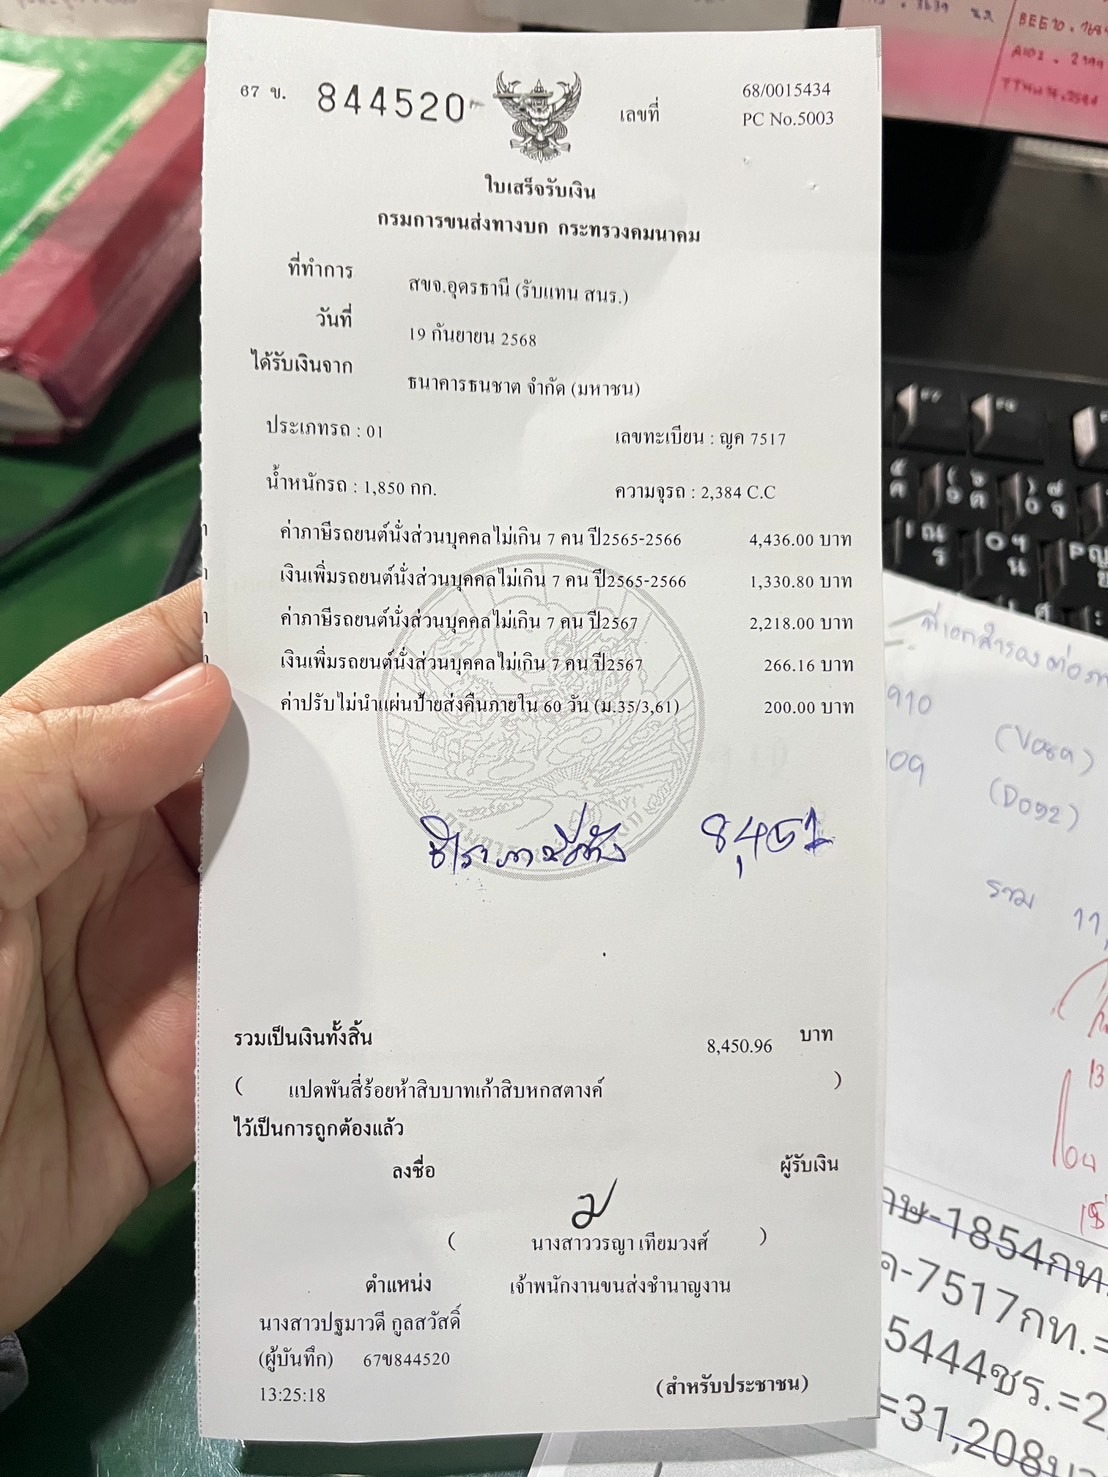 67 ข. 844520 เลขที่ 68/0015434
PC No.5003
ใบเสร็จรับเงิน
กรมการขนส่งทางบก กระทรวงคมนาคม
ที่ทำการ สขจ.อุดรธานี (รับแทน สนร.)
วันที่ 19 กันยายน 2568
ได้รับเงินจาก ธนาคารธนชาต จำกัด (มหาชน)
ประเภทรถ : 01 เลขทะเบียน : ญค 7517
น้ำหนักรถ : 1,850 กก. ความจุรถ : 2,384 C.C
ค่าภาษีรถยนต์นั่งส่วนบุคคลไม่เกิน 7 คน ปี2565-2566 4,436.00 บาท
เงินเพิ่มรถยนต์นั่งส่วนบุคคลไม่เกิน 7 คน ปี2565-2566 1,330.80 บาท
ค่าภาษีรถยนต์นั่งส่วนบุคคลไม่เกิน 7 คน ปี2567 2,218.00 บาท
เงินเพิ่มรถยนต์นั่งส่วนบุคคลไม่เกิน 7 คน ปี2567 266.16 บาท
ค่าปรับไม่นำแผ่นป้ายส่งคืนภายใน 60 วัน (ม.35/3,61) 200.00 บาท
8,451
รวมเป็นเงินทั้งสิ้น 8,450.96 บาท
( แปดพันสี่ร้อยห้าสิบบาทเก้าสิบหกสตางค์ )
ไว้เป็นการถูกต้องแล้ว
ลงชื่อ ผู้รับเงิน
( นางสาววรญา เทียมวงศ์ )
ตำแหน่ง เจ้าพนักงานขนส่งชำนาญงาน
นางสาวปฐมาวดี กูลสวัสดิ์
(ผู้บันทึก) 67ข844520
13:25:18 (สำหรับประชาชน)
910
(V089)
109
(D092)
รวม 11,
-1854กท.
-7517กท.=
5444ชร.=2
=31,208